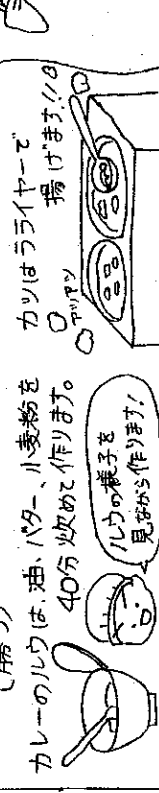 カレーのルウは、油、バター、小麦粉を
40分炒めて作ります。
ルウの様子を
見ながら作ります！
カツはフライヤーで
揚げます!!
アツアツ